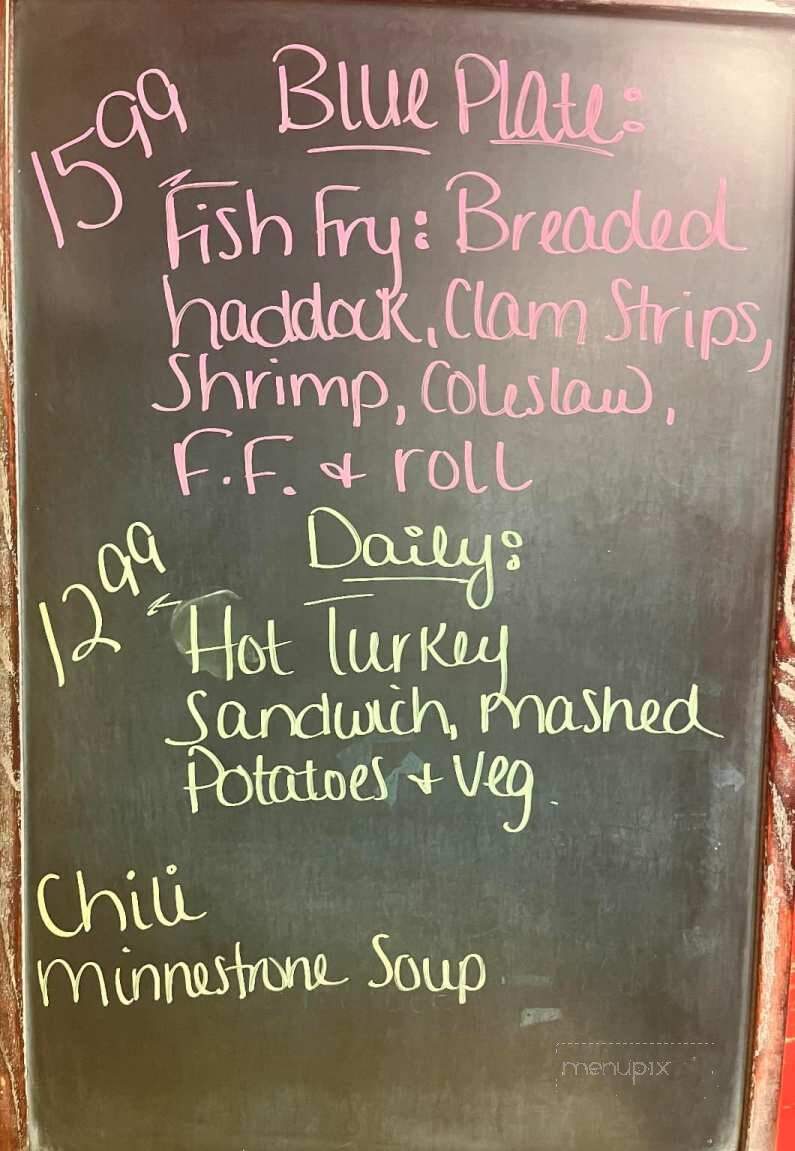 15 99 Blue Plate:
Fish Fry: Breaded
haddock, Clam Strips,
Shrimp, Coleslaw,
F.F. & roll
Daily:
12 99 Hot Turkey
Sandwich, mashed
Potatoes + Veg.
Chili
Minnestrone Soup
menupix